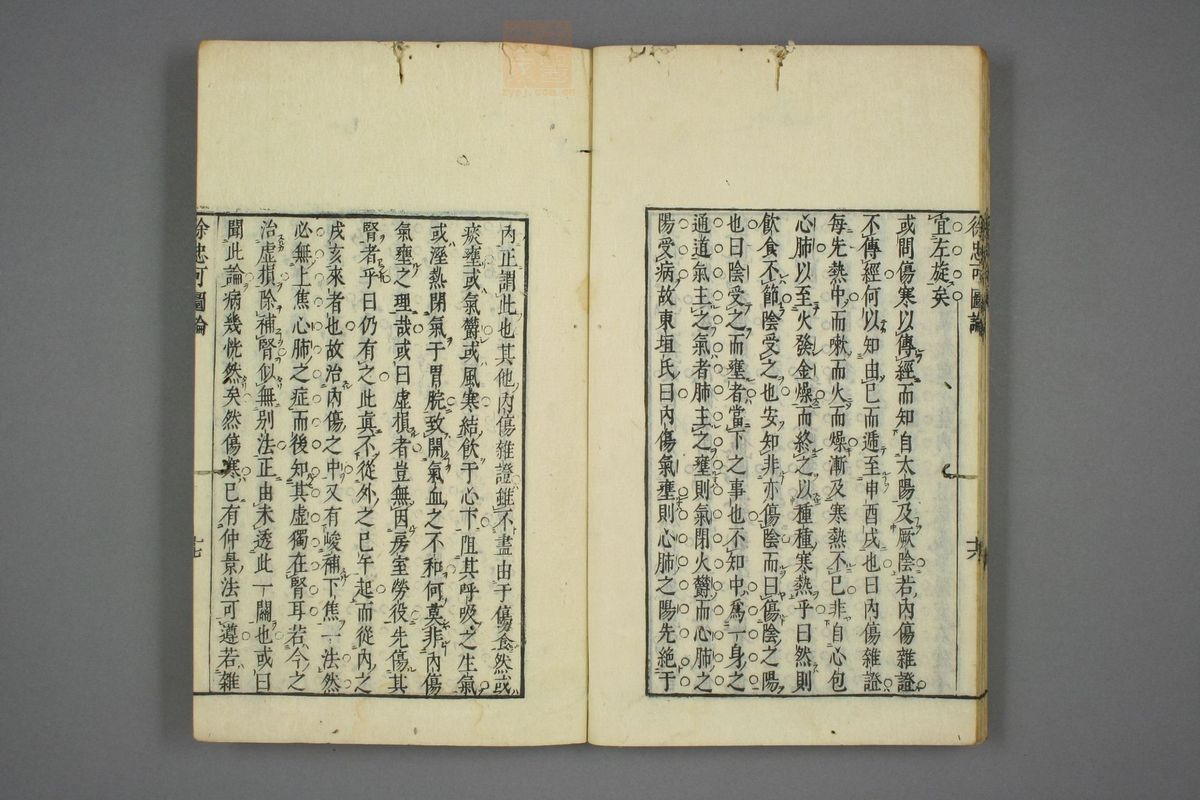 徐忠可圖論
宜左旋矣
或問傷寒以傳經而知自太陽及厥陰若內傷雜證
不傳經何以知由巳而遞至申酉戌也曰內傷雜證
每先熱中而嗽而火而燥漸及寒熱不已非自心包
心肺以至火發金燥而終之以種種寒熱乎曰然則
飲食不節陰受之也安知非亦傷陰而曰傷陰之陽
也曰陰受之而壅者當下之事也不知中為一身之
通道氣主之氣者肺主之壅則氣閉火鬱而心肺之
陽受病故東垣氏曰內傷氣壅則心肺之陽先絶于
十六
內正謂此也其他內傷雜證雖不盡由于傷食然或
痰壅或氣鬱或風寒結飲于心下阻其呼吸之生氣
或溼熱閉氣于胃脘致開氣血之不和何莫非內傷
氣壅之理哉或曰虛損者豈無因房室勞役先傷其
腎者乎曰仍有之此眞不從外之巳午起而從內之
戌亥來者也故治內傷之中又有峻補下焦一法然
必無上焦心肺之症而後知其虛獨在腎耳若今之
治虛損除補腎似無别法正由未透此一關也或曰
聞此論病幾恍然矣然傷寒已有仲景法可遵若雜
徐忠可圖論
十七